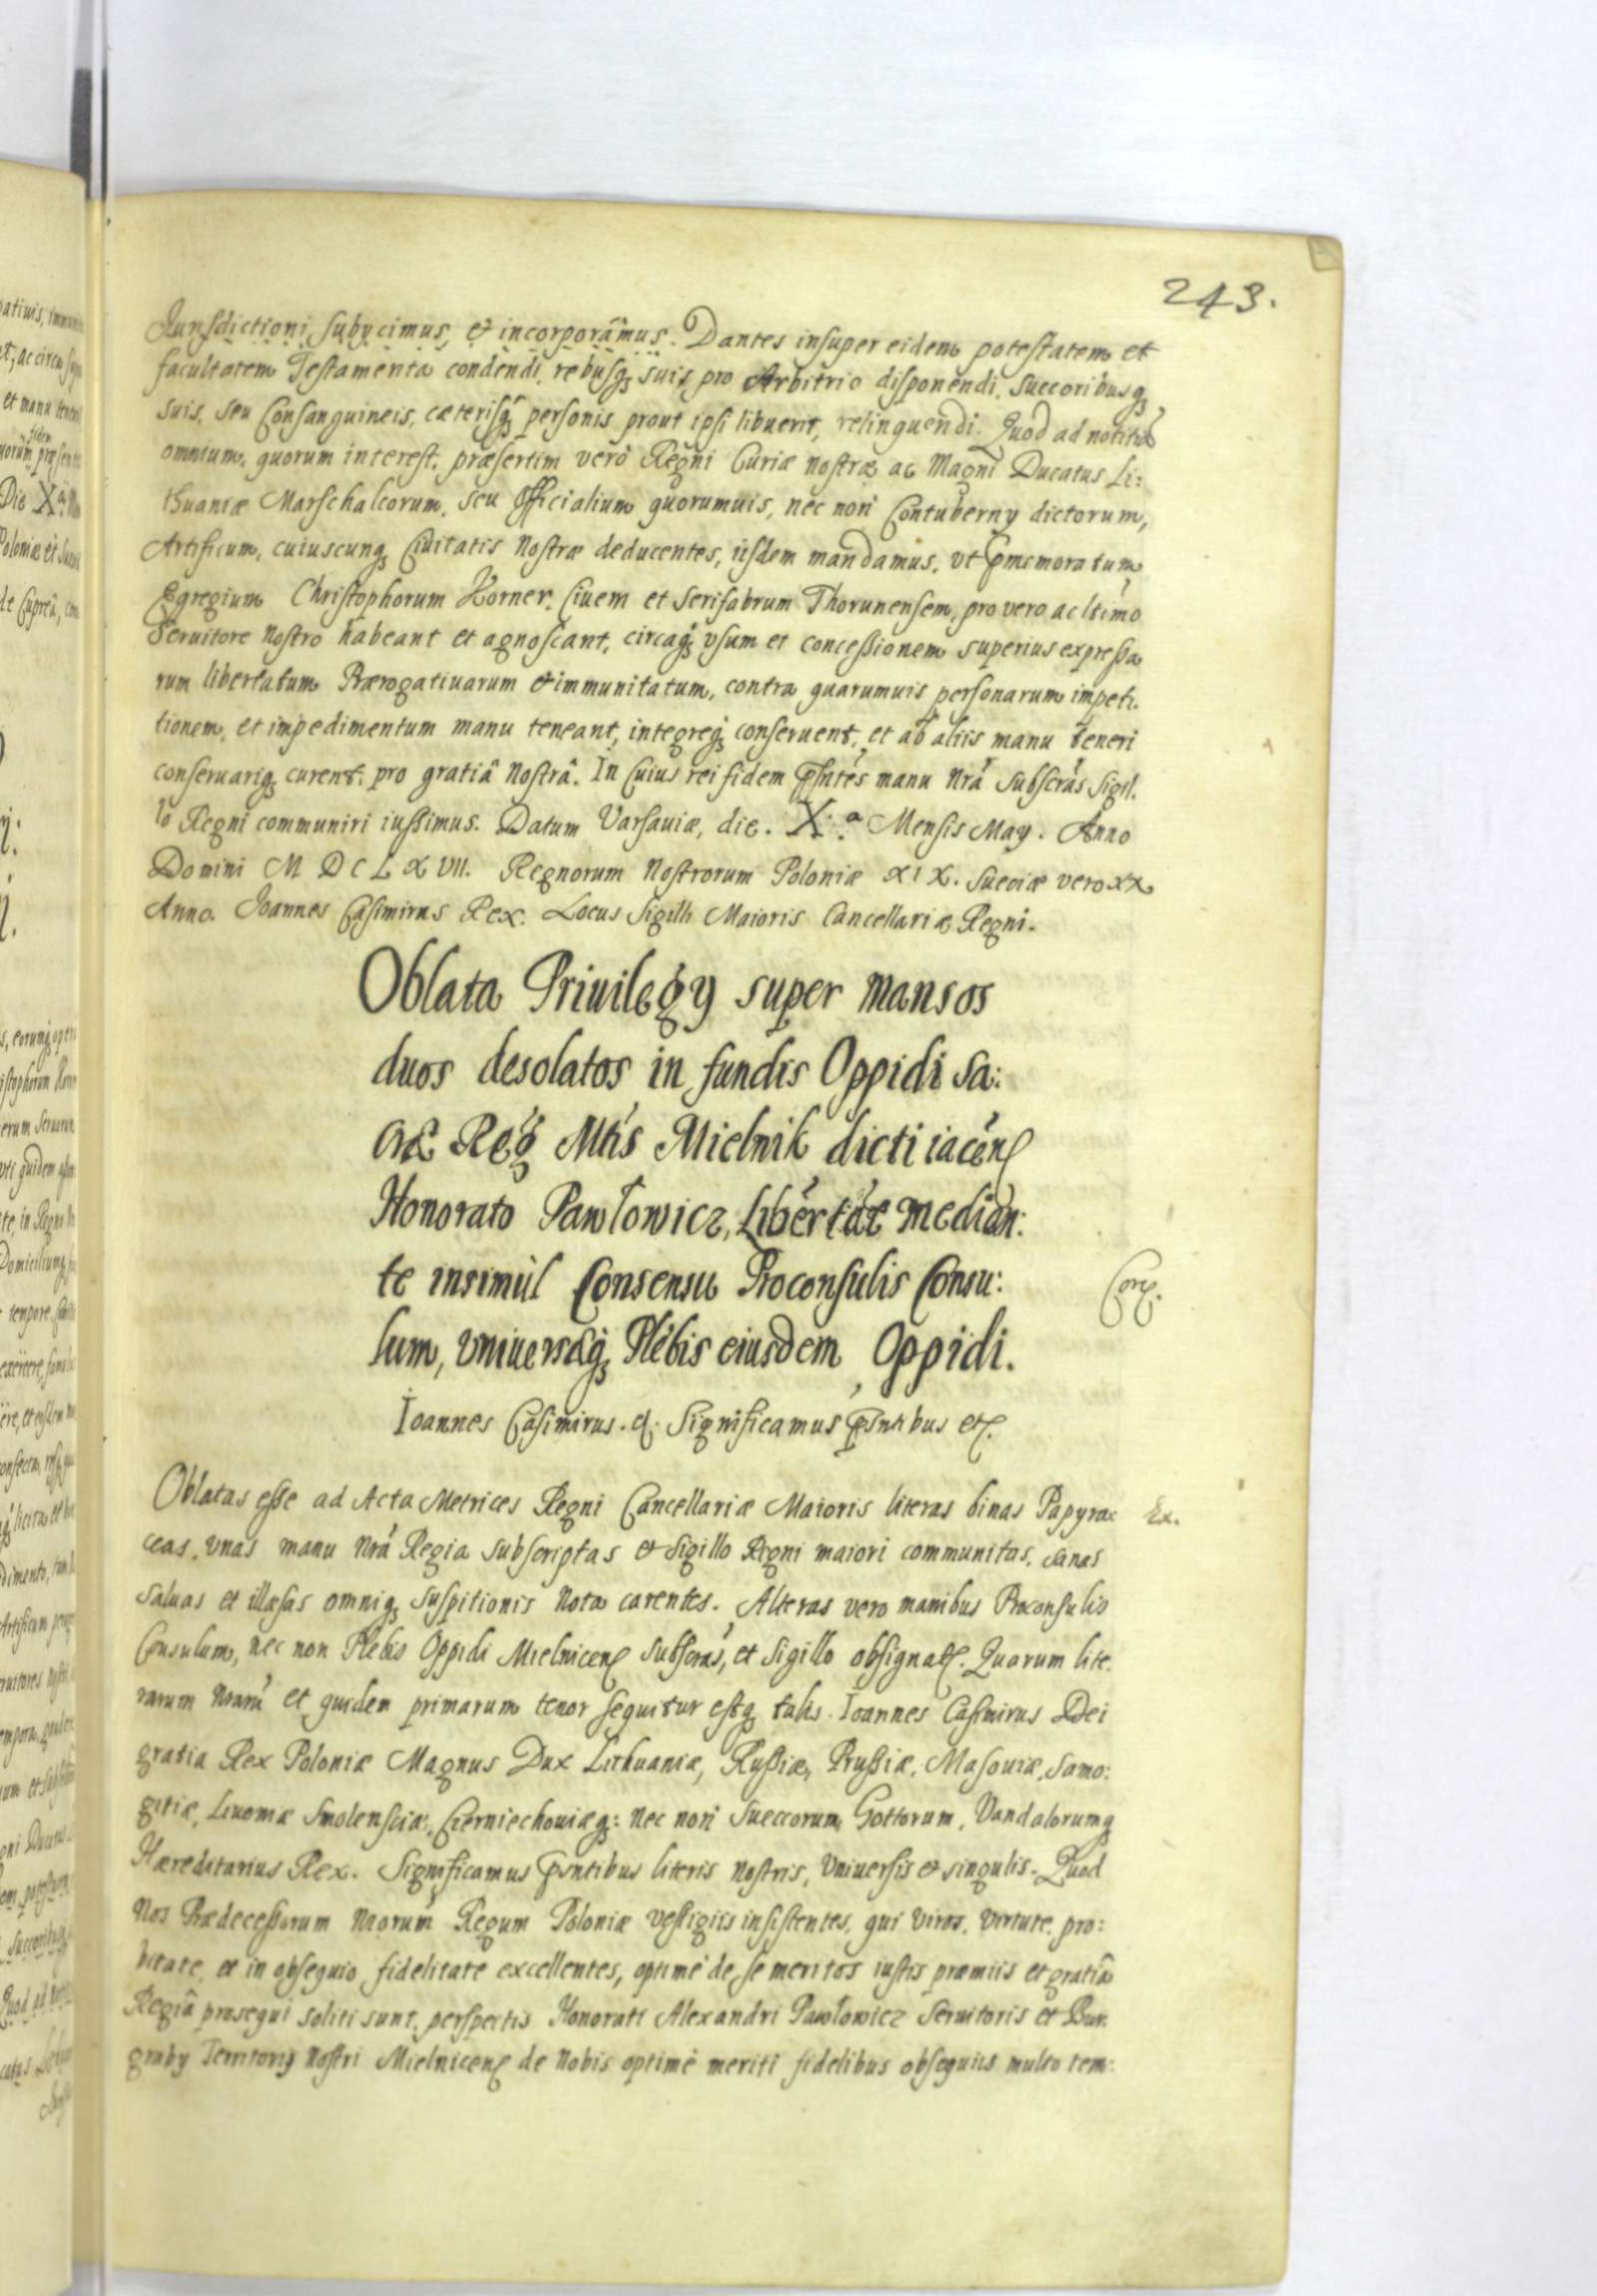 243.
Jurisdictioni subycimus, et incorporâmus. Dantes insuper eidem potestatem et
facultatem Testamenta condendi, rebusq3 suis pro Arbitrio disponendi, succoribusq3
suis, seu Consanguineis, cæterisq3 personis prout ipsi libuerit, relinquendi. Quod ad notitiã
omnium, quorum interest, præsertim verò Regni Curiæ nostræ ac Magni Ducatus Li:
thuaniæ Marschalcorum, seu Officialium quorumuis, nec non Contuberny dictorum,
Artificum, cuiuscunq3 Ciuitatis Nostræ deducentes, iisdem mandamus, vt pmemoratum
Egregium Christophorum Horner, Ciuem et Serifabrum Thorunensem, pro vero ac ltimo
Seruitore Nostro habeant et agnoscant, circaq3 vsum et concessionem superius expressa
rum libertatum Prærogatiuarum et immunitatum, contra quarumuis personarum impeti.
tionem, et impedimentum manu teneant, integreq3 conseruent, et ab aliis manu teneri
conseruariq3 curent, pro gratiâ Nostrâ. In Cuius rei fidem psntes manu Nrâ Subscras Sigil.
lo Regni communiri iussimus. Datum Varsauiæ, die. X.ª Mensis May. Anno
Domini M D C L X VII. Regnorum Nostrorum Poloniæ XIX. Sueciæ vero XX
Anno. Joannes Casimirus Rex. Locus Sigilli Maioris Cancellariæ Regni.
Oblata Priuilegy super mansos
duos desolatos in fundis Oppidi Sa:
cræ Reg Mtis Mielnik dicti iacen
Honorato Pawłowicz, Libertate median:
te insimùl Consensu Proconsulis Consu:
lum, vniuersæq3 Plebis eiusdem Oppidi.
Corr.
Ioannes Casimirus. &. Significamus psntibus etc.
Oblatas esse ad Acta Metrices Regni Cancellariæ Maioris literas binas Papyra:
Ex.
ceas, vnas manu Nrâ Regia subscriptas et Sigillo Regni maiori communitas, sanas
saluas et illæsas omniq3 suspitionis Nota carentes. Alteras vero manibus Proconsulis
Consulum, nec non Plebis Oppidi Mielnicen subscras, et Sigillo obsignat. Quarum lite.
rarum Nrarũ et quidem primarum tenor sequitur estq3 talis. Ioannes Casimirus Dei
gratia Rex Poloniæ Magnus Dux Lithuaniæ, Russiæ, Prussiæ, Masouiæ, Samo:
gitiæ, Liuoniæ Smolensciæ, Czerniechouiæq3: Nec non Sueccorum Gottorum, Vandalorumq3
Hæreditarius Rex. Significamus psntibus literis Nostris, Vniuersis et singulis. Quod
Nos Prædecessorum Nrorum Regum Poloniæ vestigiis insistentes, qui viros, virtute, pro:
bitate, et in obsequio fidelitate excellentes, optimè de se meritos iustis præmiis et gratiâ
Regiâ prosequi soliti sunt, perspectis Honorati Alexandri Pawłowicz Seruitoris et Bur.
graby Territoriy Nostri Mielnicen de Nobis optimè meriti fidelibus obsequiis multo tem: